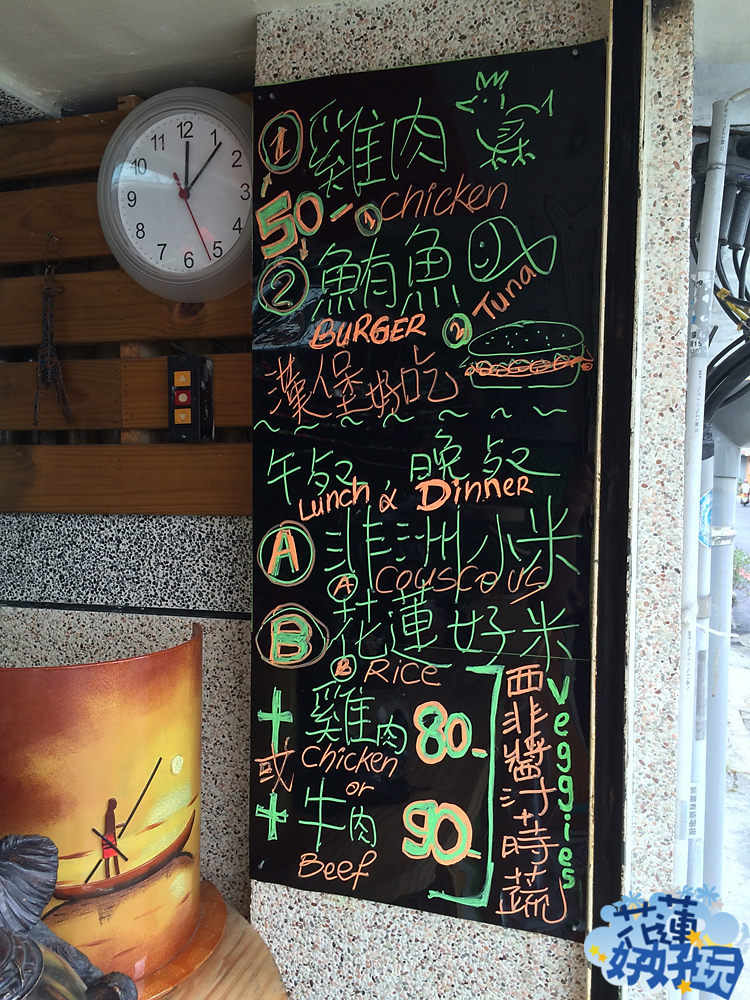 ① 雞肉
50- ① chicken
② 鮪魚
② Tuna
BURGER
漢堡好吃
午飯、晚飯
Lunch & Dinner
Ⓐ 非洲小米
Ⓐ couscous
Ⓑ 花蓮好米
Ⓑ Rice
+ 雞肉 80-
或 chicken
or
+ 牛肉 90-
Beef
西非醬汁+時蔬
veggies
12
1
2
3
4
5
6
7
8
9
10
11
花蓮
好好玩